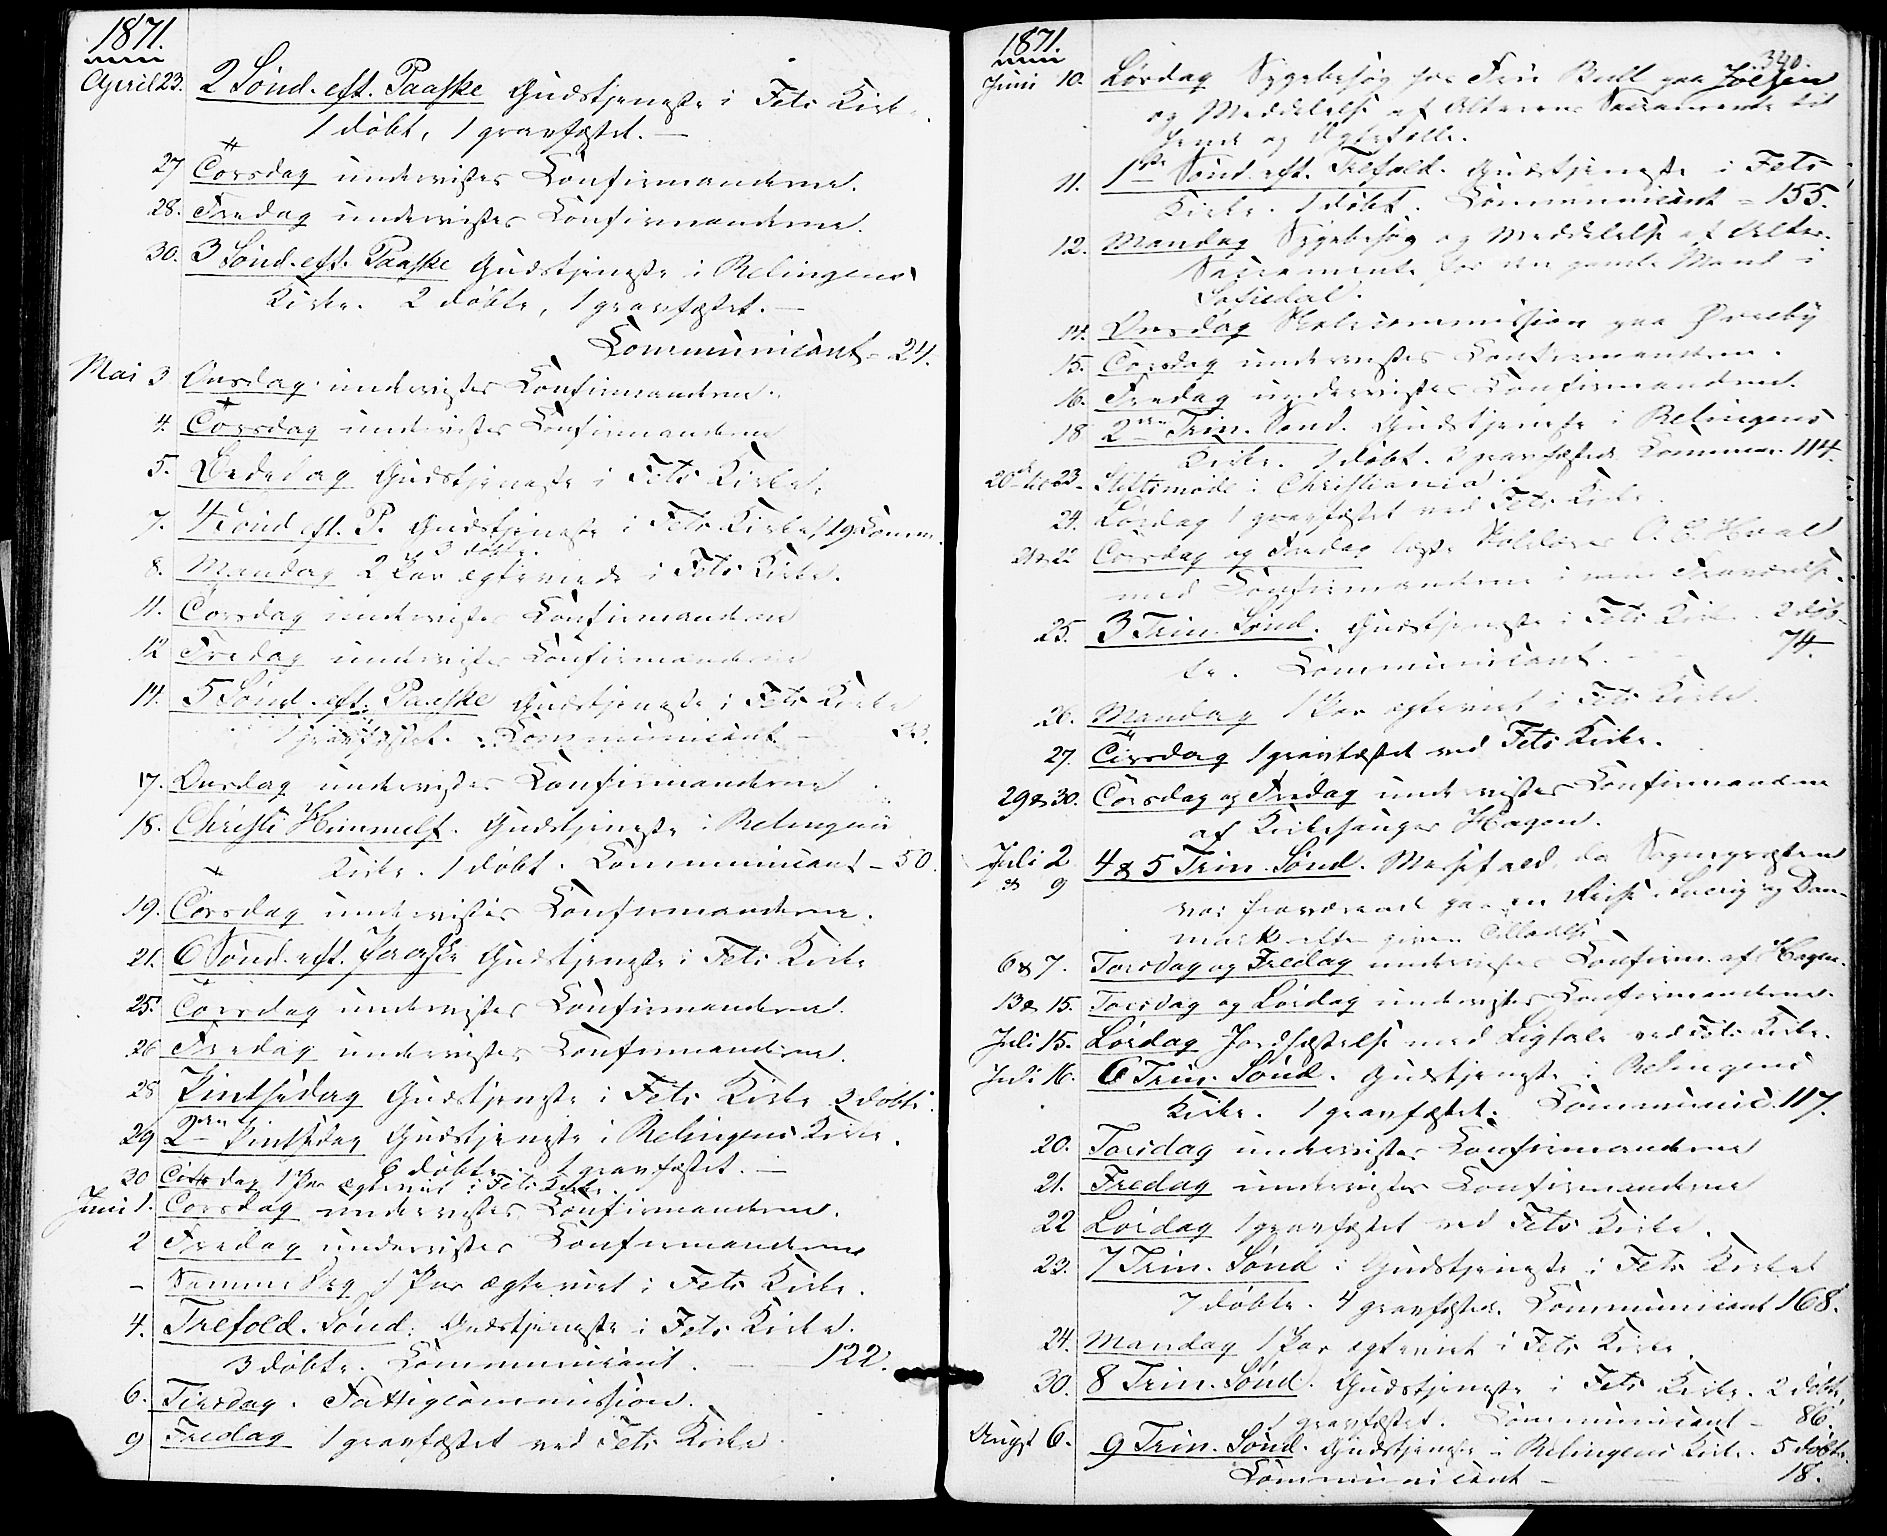 1871.
April 23. 2 Sønd. eft. Paaske Gudstjeneste i Fets Kirke.
1 døbt, 1 gravfæstet. —
27 Torsdag undervistes Konfirmanderne.
28. Fredag undervistes Konfirmanderne.
30. 3 Sønd. eft. Paaske Gudstjeneste i Relingens
Kirke. 2 døbte, 1 gravfæstet. —
Communicant. 24.
Mai 3 Onsdag undervistes Konfirmanderne.
4. Torsdag undervistes Konfirmanderne
5. Bededag Gudstjeneste i Fets Kirke.
7. 4 Sønd eft. P. Gudstjeneste i Fets Kirke, 19 Commu.
3 døbte.
8. Mandag 2 Par ægteviede i Fets Kirke.
11. Torsdag undervistes Konfirmanderne
12 Fredag undervistes Konfirmanderne
14. 5 Sønd. eft. Paaske Gudstjeneste i Fets Kirke
1 gravfæstet. Communicant — 23.
17. Onsdag undervistes Konfirmanderne
18. Christi Himmelf. Gudstjeneste i Relingens
Kirke. 1 døbt. Communicant — 50.
19. Torsdag undervistes Konfirmanderne.
21. 6 Sønd. eft. Paaske Gudstjeneste i Fets Kirke
25. Torsdag undervistes Konfirmanderne.
26 Fredag undervistes Konfirmanderne.
28 Pintsedag Gudstjeneste i Fets Kirke 2 døbte.
29 2den Pintsedag Gudstjeneste i Relingens Kirke.
6 døbte. 1 gravfæstet. —
30 Tirsdag 1 Par ægteviet i Fets Kirke.
Juni 1. Torsdag undervistes Konfirmanderne.
2 Fredag undervistes Konfirmanderne
– Samme Dag 1 Par ægteviet i Fets Kirke.
4. Trefold. Sønd. Gudstjeneste i Fets Kirke.
3 døbte. Communicant. — 122.
6. Tirsdag. Fattigcommission.
9 Fredag 1 gravfæstet ved Fets Kirke.
340.
1871.
Juni 10. Lørdag Sygebesøg hos Fru Bull paa
og Meddelelse af Alterens Sacramente til
hende og Ægtefælle.
11. 1ste Sønd. eft. Trefold. Gudstjeneste i Fets
Kirke. 1 døbt. Communicant – 155.
12. Mandag Sygebesøg og Meddelelse af Alter.
Sacramente for en gamle Mand i
Sofiedal.
14. Onsdag Skolecommission paa
15. Torsdag undervistes Konfirmanderne.
16. Fredag undervistes Konfirmanderne.
18 2den Trin. Sønd. Gudstjeneste i Relingens
Kirke. 1 døbt. 2 gravfæstede Commun. 114.
20de til 23 Stiftsmøde i Christiania.
24. Lørdag 1 gravfæstet ved Fets Kirke.
21 & 22 Torsdag og Fredag læste Skolelærer O. E. Hval
med Konfirmanderne i min Fraværelse.
25. 3 Trin. Sønd. Gudstjeneste i Fets Kirke. 2 døb-
te. Communicant. — 74.
26. Mandag 1 Par ægteviet i Fets Kirke.
27. Tirsdag 1 gravfæstet ved Fets Kirke.
29 & 30. Torsdag og Fredag undervistes Konfirmanderne
af Kirkesanger Hagen.
Juli 2 & 9 4 & 5 Trin. Sønd. Messefald, da Sognepræsten
var fraværende paa en Reise i Sverig og Dan-
mark efter given Tilladelse.
6 & 7. Torsdag og Fredag undervistes Konfirm. af Hagen.
13 & 15. Torsdag og Lørdag undervistes Konfirmanderne.
Juli 15. Lørdag Jordfæstelse med Ligtale ved Fets Kirke.
Juli 16. 6 Trin. Sønd. Gudstjeneste i Relingens
Kirke. 1 gravfæstet. Communic. 117.
20. Torsdag undervistes Konfirmanderne
21. Fredag undervistes Konfirmanderne
22 Lørdag 1 gravfæstet ved Fets Kirke.
23. 7 Trin. Sønd. Gudstjeneste i Fets Kirke
7 døbte. 4 gravfæstede. Communicant 168.
24. Mandag 1 Par ægteviet i Fets Kirke.
30. 8 Trin. Sønd. Gudstjeneste i Fets Kirke. 2 døbte,
1 gravfæstet. Communicant – 86.
Augst 6. 9 Trin. Sønd. Gudstjeneste i Relingens Kirke. 5 døbte.
Communicant – 18.